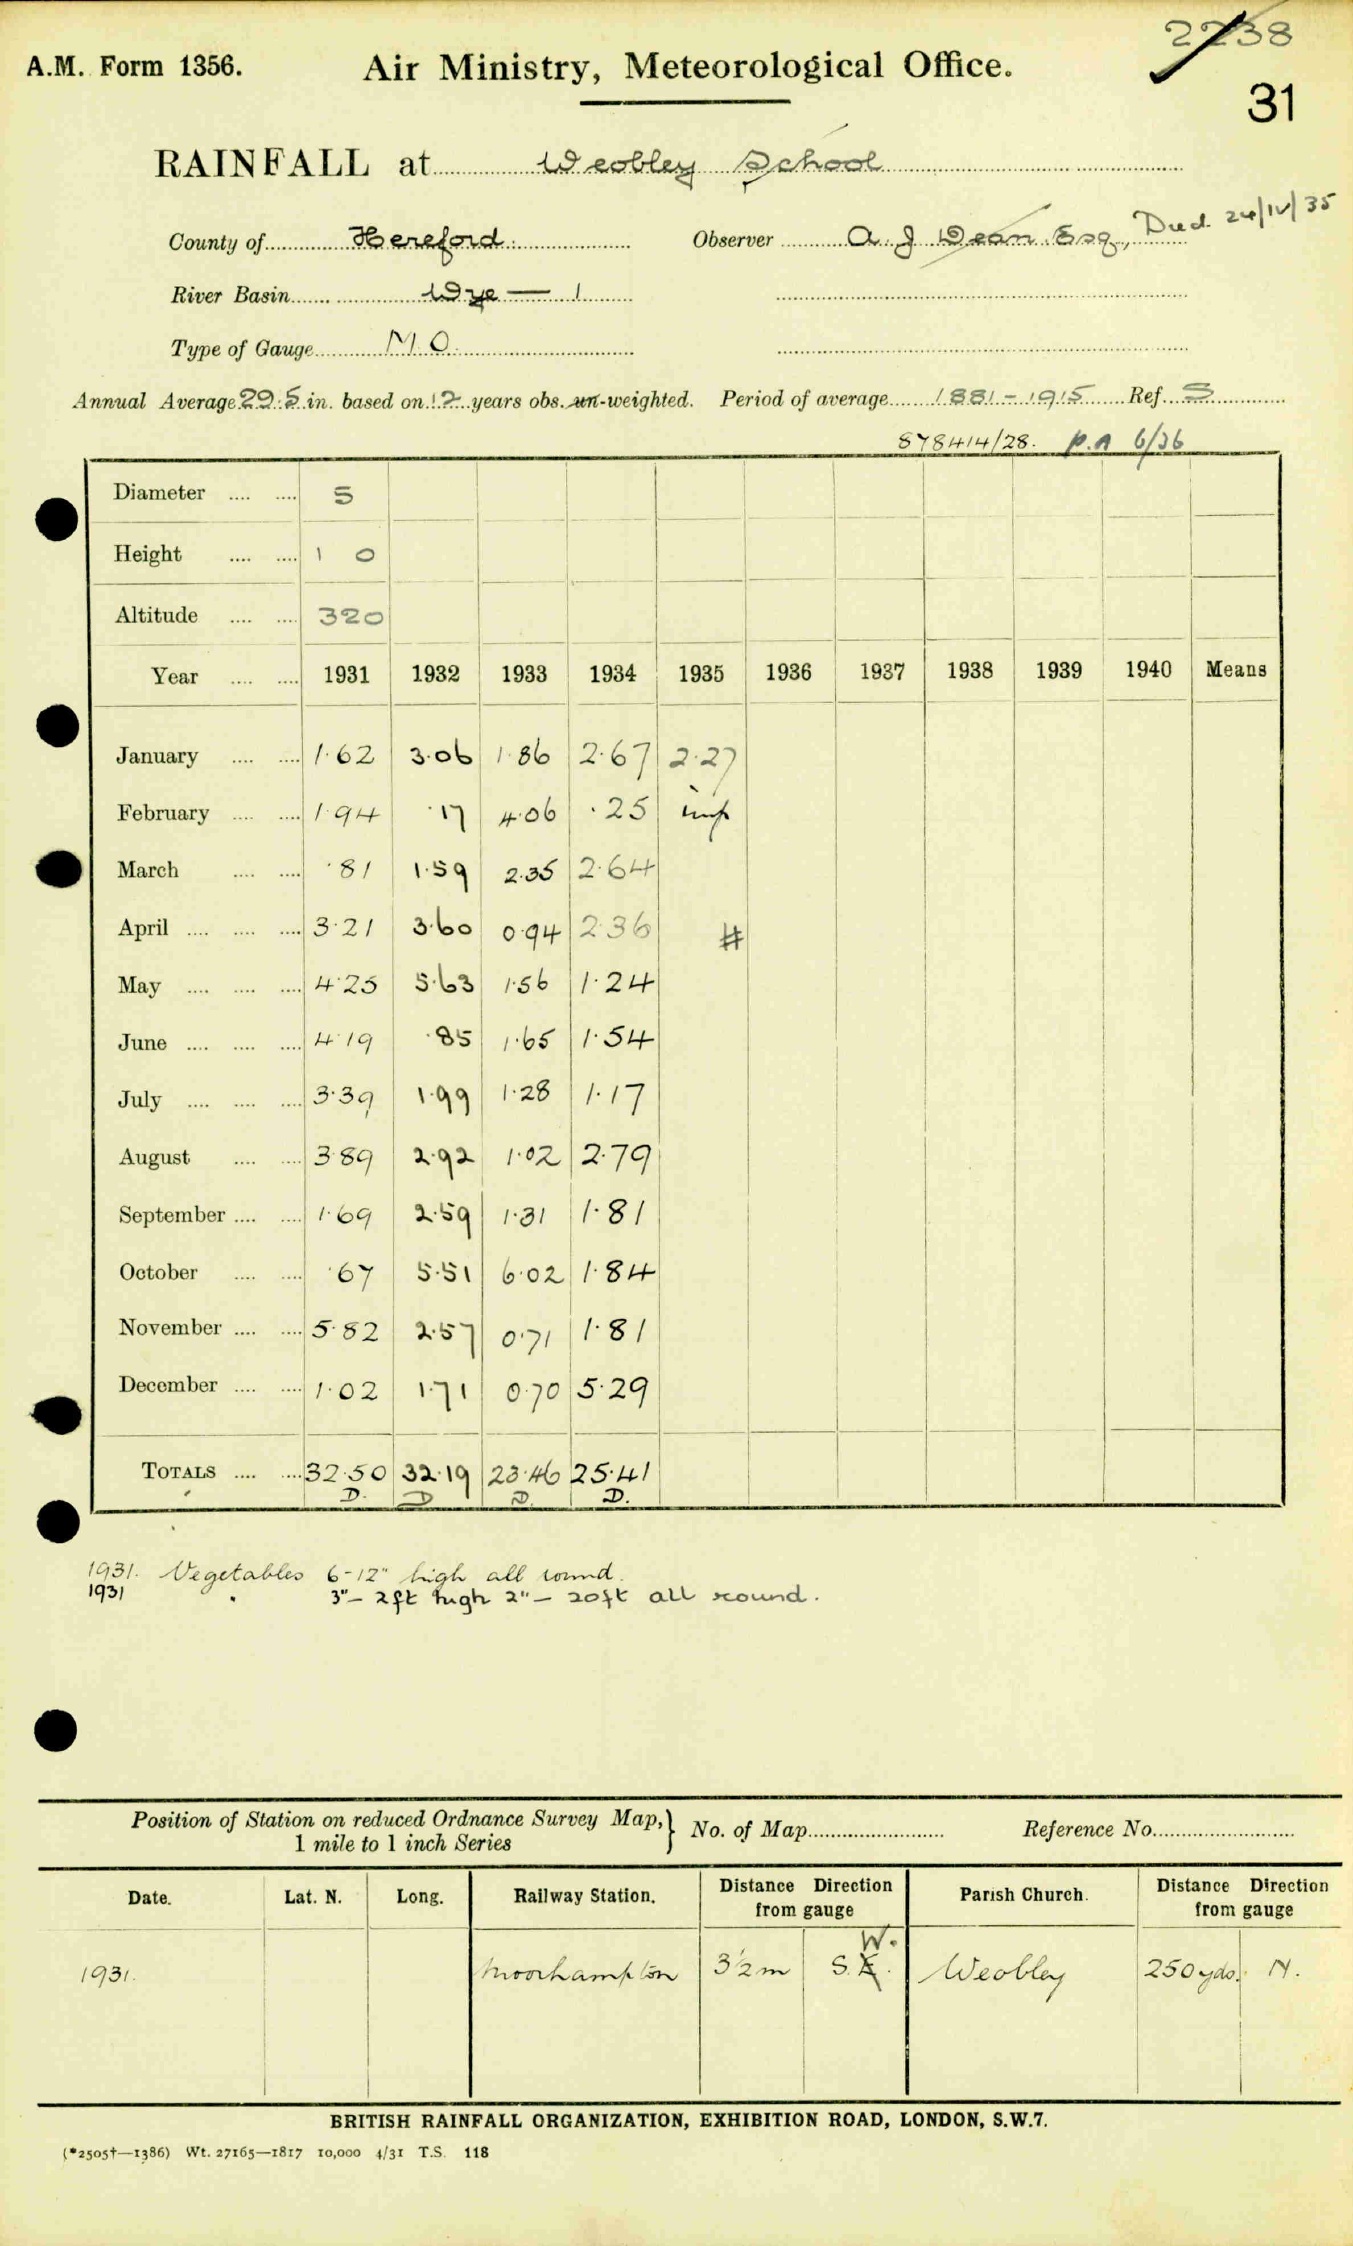 2238
A.M. Form 1356. Air Ministry, Meteorological Office.
31
RAINFALL at Weobley School
County of Hereford. Observer A. J Dean Esq, Died 24/IV/35
River Basin Wye — 1
Type of Gauge M.O.
Annual Average 29.5 in. based on 12 years obs. un-weighted. Period of average 1881-1915 Ref. S
878414/28. P.A 6/36
Diameter 5
Height 1 0
Altitude 320
Year 1931 1932 1933 1934 1935 1936 1937 1938 1939 1940 Means
January 1.62 3.06 1.86 2.67 2.27
February 1.94 .17 4.06 .25 imp
March .81 1.59 2.35 2.64
April 3.21 3.60 0.94 2.36 #
May 4.25 5.63 1.56 1.24
June 4.19 .85 1.65 1.54
July 3.39 1.99 1.28 1.17
August 3.89 2.92 1.02 2.79
September 1.69 2.59 1.31 1.81
October .67 5.51 6.02 1.84
November 5.82 2.57 0.71 1.81
December 1.02 1.71 0.70 5.29
TOTALS 32.50 32.19 23.46 25.41
D. D D. D.
1931. Vegetables 6-12" high all round.
1931 " 3"- 2ft high 2"- 20ft all round.
Position of Station on reduced Ordnance Survey Map,} No. of Map Reference No.
1 mile to 1 inch Series
Date. Lat. N. Long. Railway Station. Distance Direction from gauge Parish Church. Distance Direction from gauge
1931. Moorhampton 3½m S.E. W. Weobley 250yds. N.
BRITISH RAINFALL ORGANIZATION, EXHIBITION ROAD, LONDON, S.W.7.
(*2505†—1386) Wt. 27165—1817 10,000 4/31 T.S. 118